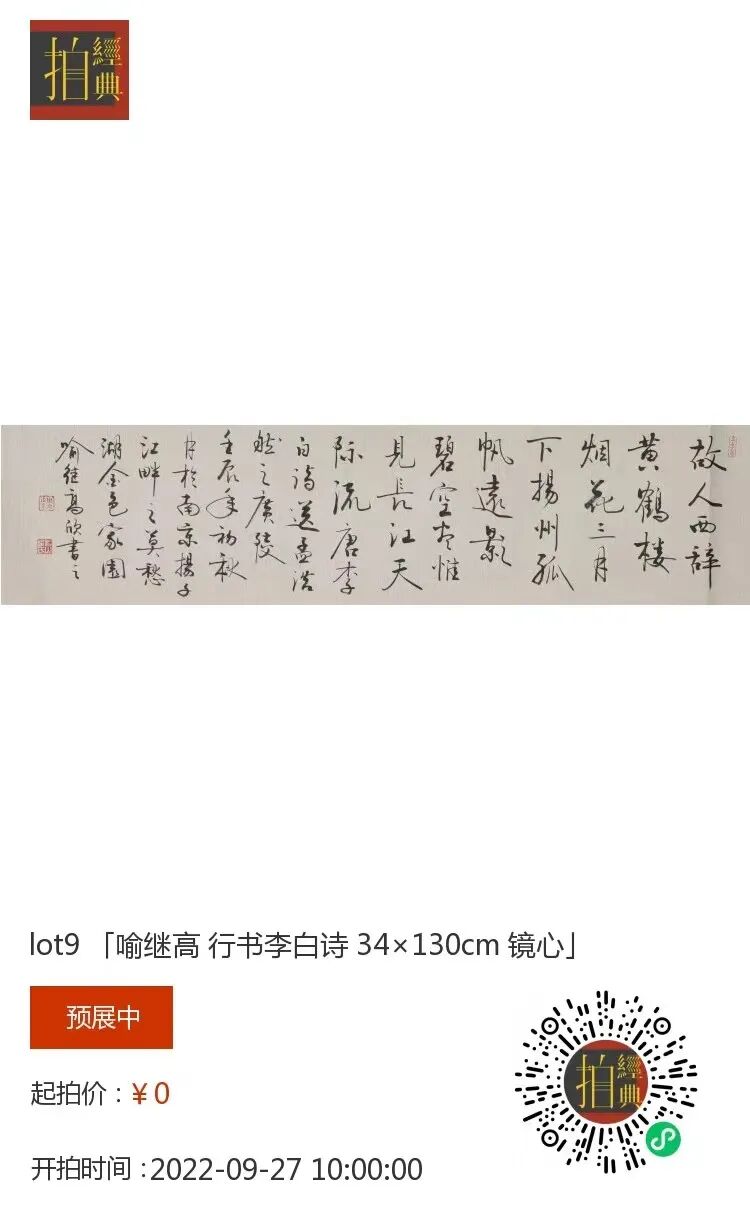 拍
經典
故人西辞
黄鹤楼
烟花三月
下揚州孤
帆遠影
碧空尽惟
見長江天
际流唐李
白诗送孟浩
然之廣陵
壬辰年初秋
月於南京揚子
江畔之莫愁
湖金色家園
喻继高欣書之
lot9 「喻继高 行书李白诗 34×130cm 镜心」
预展中
起拍价：¥0
开拍时间：2022-09-27 10:00:00
拍
經典